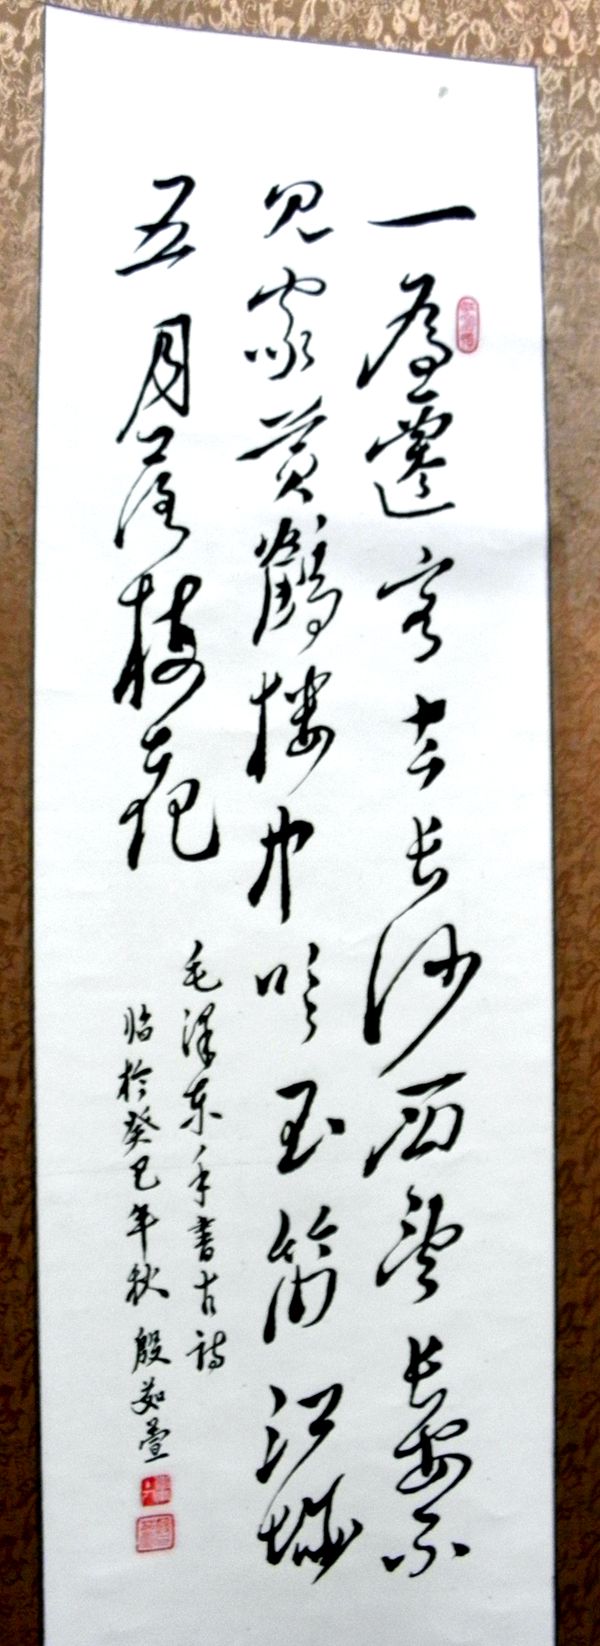 一為遷客去长沙西望长安不
见家黄鹤楼中吹玉笛江城
五月落梅花
毛泽东手书古诗
临於癸巳年秋 殷茹萱